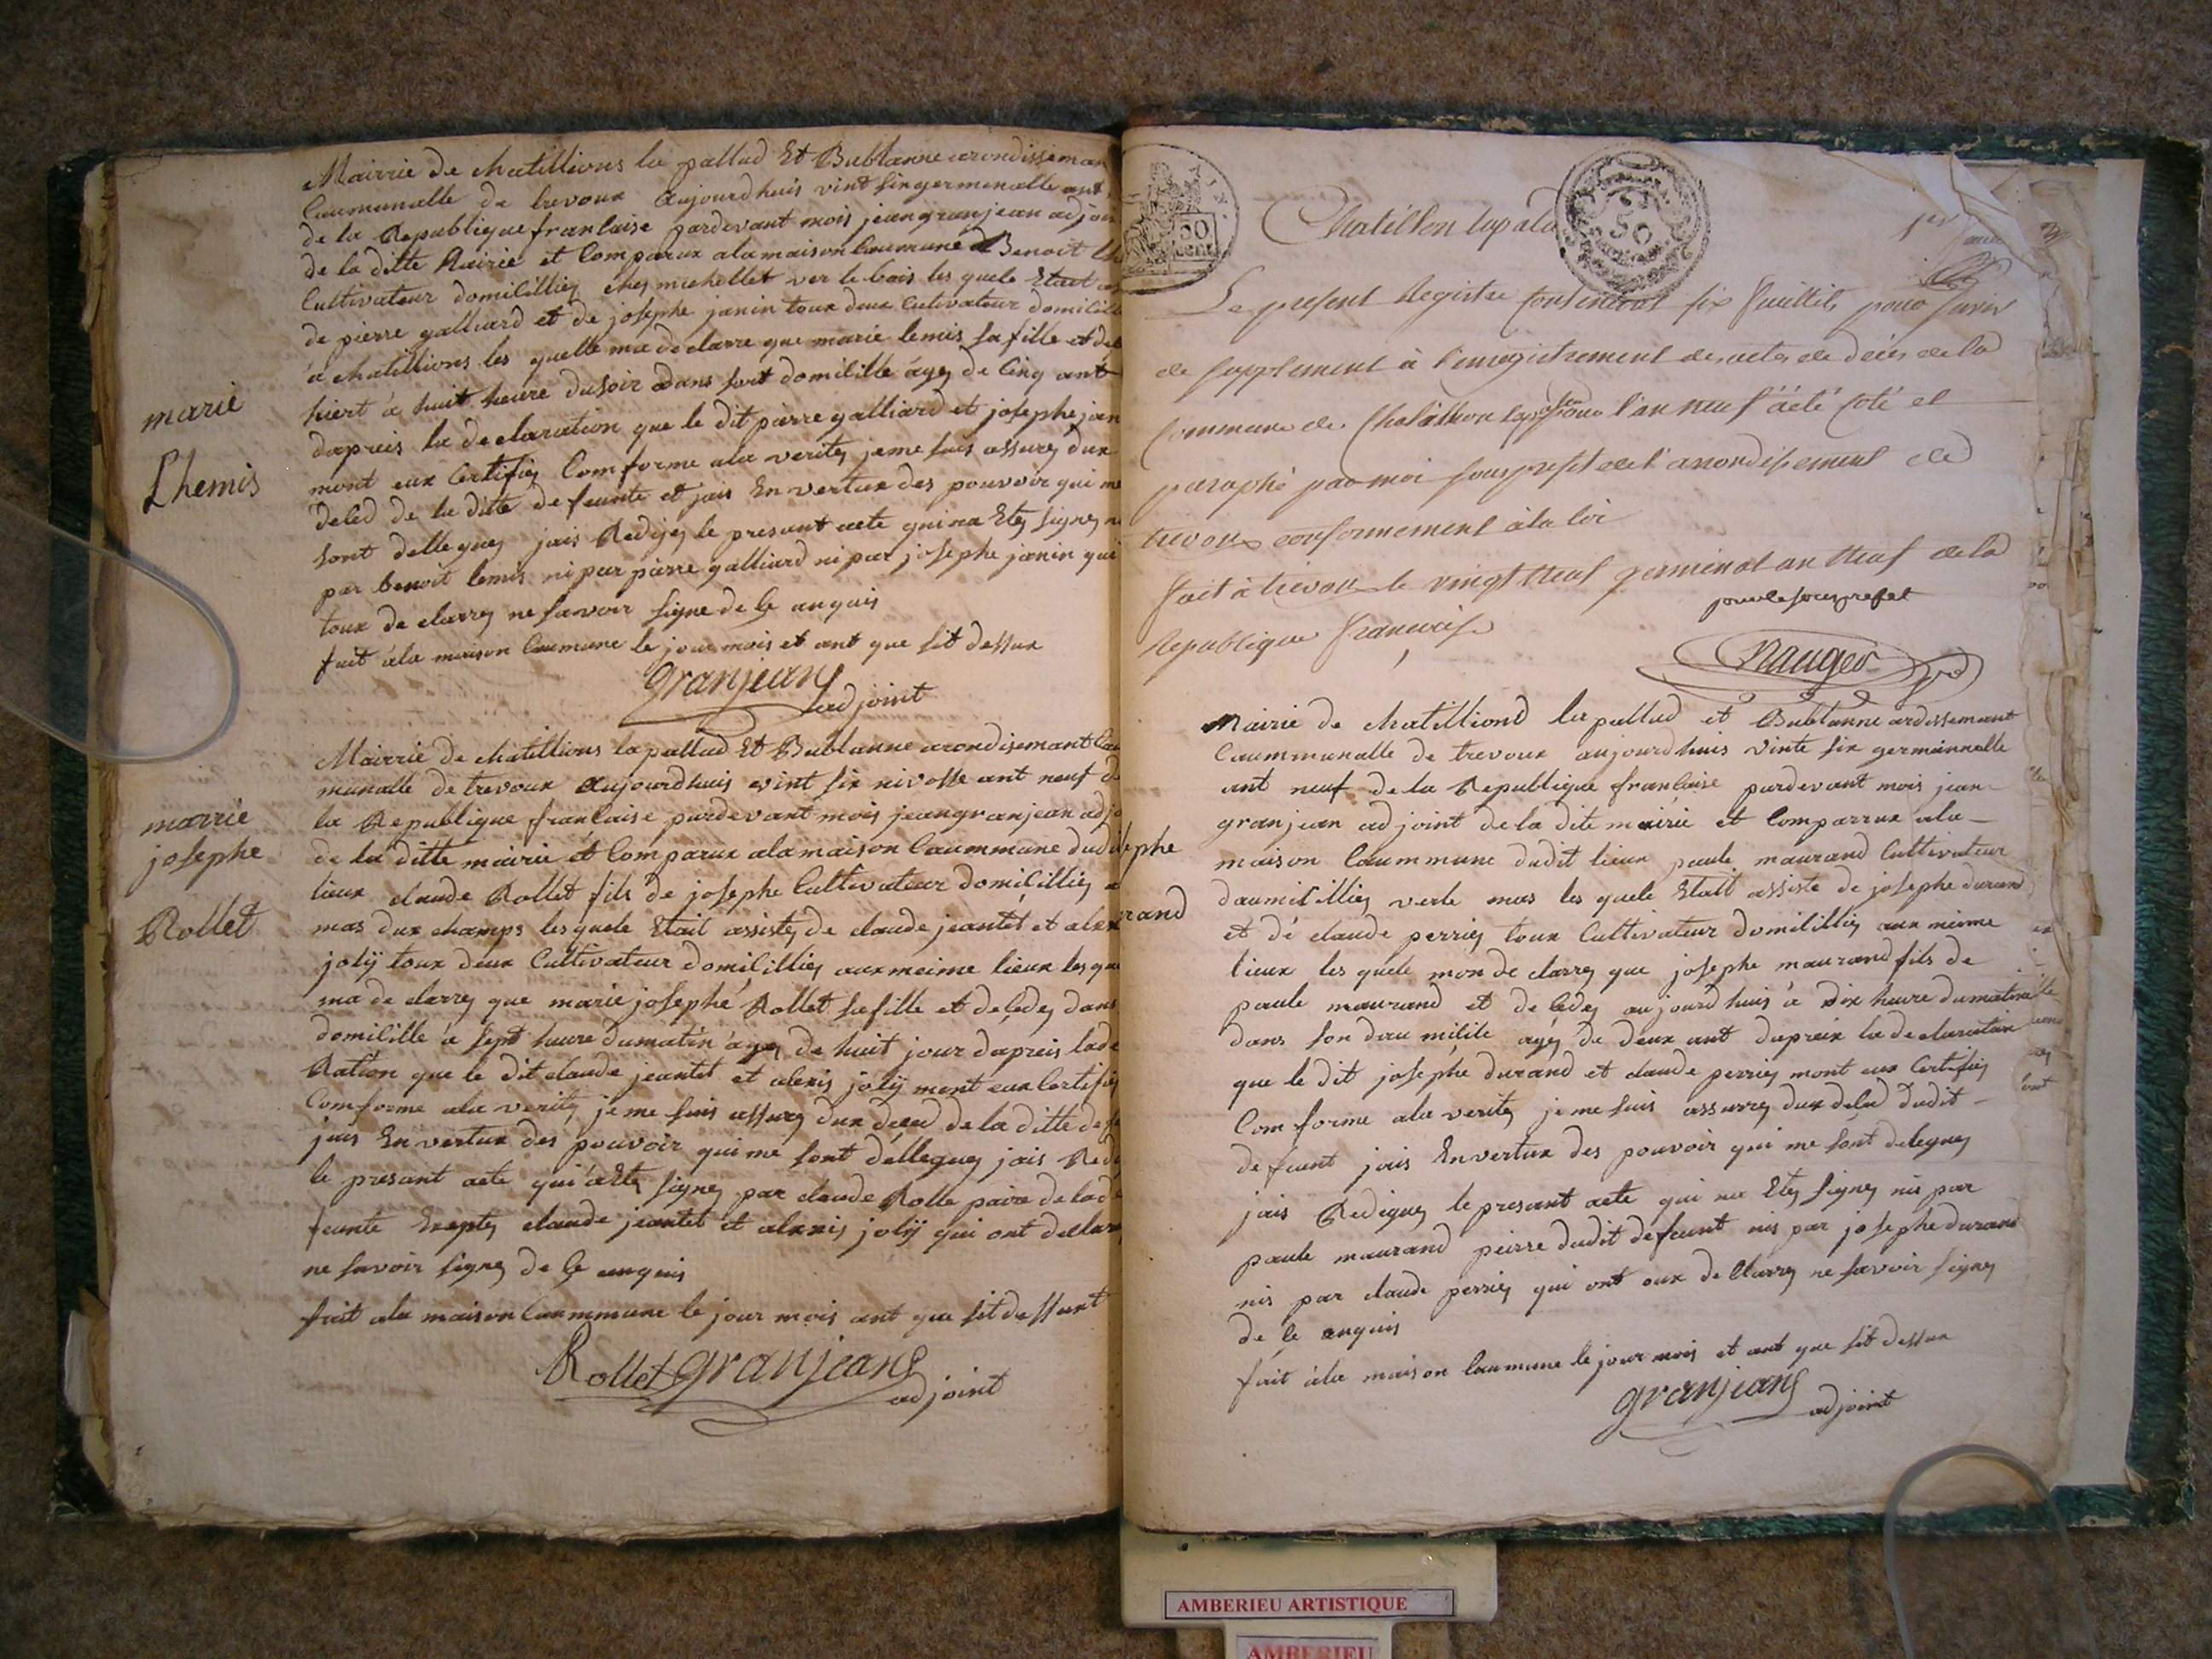 Mairrie de chatillions la pallud Et Bublanne arondisseman
Caumunalle de trevoux aujourdhuis vint sixgermenalle ant
de la Republique franlaise pardevant mois jeangranjean adjoi
de la ditte Mairie et Comparux alamaison Caumune d Benoit
Cultivateur domicillié ches michellet ver le bois les quele Etait
de pierre galliard et de josephe janin toux deux Cultivateur domicilié
a chatillions les quelle ma declarre que marie lemis sa fille et de
hiert à huit heure dusoir dans sont domicille âgé de Cinq ant
dapreis la declaration que le dit pierre galliard et josephe jan
mont eux Certifié Comforme ala verité jeme suis assuré dux
deled de la dite defeunte et jais En vertux des pouvoir qui me
sont dellegué jais Redijé le presant acte qui na Eté signé n
par benoit lemis ni par pierre galliard ni par josephe janin qui
toux declarré ne savoir signe de Ce anquis
fait àla maison Caumune le jour mois et ant que sit dessux
granjean
adjoint
marie
Lhemis
Mairrie de chatillions la pallud Et Bublanne arondisemant Cau
munalle de trevoux aujourdhuis vint six nivosse ant neuf de
la Republique franlaise pardevant mois jeangranjean adjo
de la ditte mairie et Comparux alamaison Caummune dudi
lieux claude Rollet fils de josephe Cultivateur domicillié a
mas dux champs lesquele Etait assisté de claude jeantet et alex
jolÿ toux deux Cultivateur domicillié aux meime lieux les que
ma declarré que marie josephe Rollet safille et decedé dans
domicille a sept heure dumatin âgé de huit jour dapreis lade
Ration que le dit claude jeantet et alexis jolÿ mont eux Certifié
Comforme ala verité je me suis assuré dux deled de la ditte defe
jais En vertux des pouvoir qui me sont dellegué jais Redi
le presant acte qui a Eté signé par claude Rolle paire de lade
feunte Exepté claude jeantet et alexis jolÿ qui ont dellar
ne savoir signé de Ce anquis
fait ala maison Caummune le jour mois ant que sit dessunt
Rollet granjean
adjoint
marrie
josephe
Rollet
50
cent
Chatillon lapalu
50
1er
Le present Registre Contenant six feuillets pour servir
de supplement à l'enregistrement des actes de décès de la
commune de Chatillon lapalud pour l'an neuf à été coté et
paraphé par moi sousprefet de l'arrondissement de
trevoux conformement à la loi
fait à trevoux le vingt neuf germinal an neuf de la
Republique francaise
pour le sousprefet
Nauger
sephe
rand
Mairie de chatilliond la pallud et Bublanne ardissemant
Caummunalle de trevoux aujourdhuis vinte six germinnelle
ant neuf de la Republique franlaise pardevant mois jean
granjean adjoint de la dite mairie et Comparrux ala
maison Caummune dudit lieux paule maurand Cultivateur
daumicillié verle mas les quele Etait assiste de josephe durand
et dé claude perrié toux Cultivateur domicillié aux meime
lieux les quele mon declarré que josephe maurand fils de
paule maurand et de Cedé aujourdhuis à dix heure dumatin
dans son daumicile agé de deux ant dapreix la declaration
que le dit josephe durand et claude perrié mont eux Certifié
Comforme ala verité jeme suis assurré dux deled dudit
defeunt jais Envertux des pouvoir qui me sont delegué
jais Redigué lepresant acte qui na Eté signé nis par
paule maurand peirre dudit defeunt nis par josephe durand
nis par claude perrié qui ont eux dellarré ne savoir signé
de Ce enquis
fait àla maison Caumune le jour mois et ant que sit dessux
granjean
adjoint
AMBERIEU ARTISTIQUE
AMBERIEU